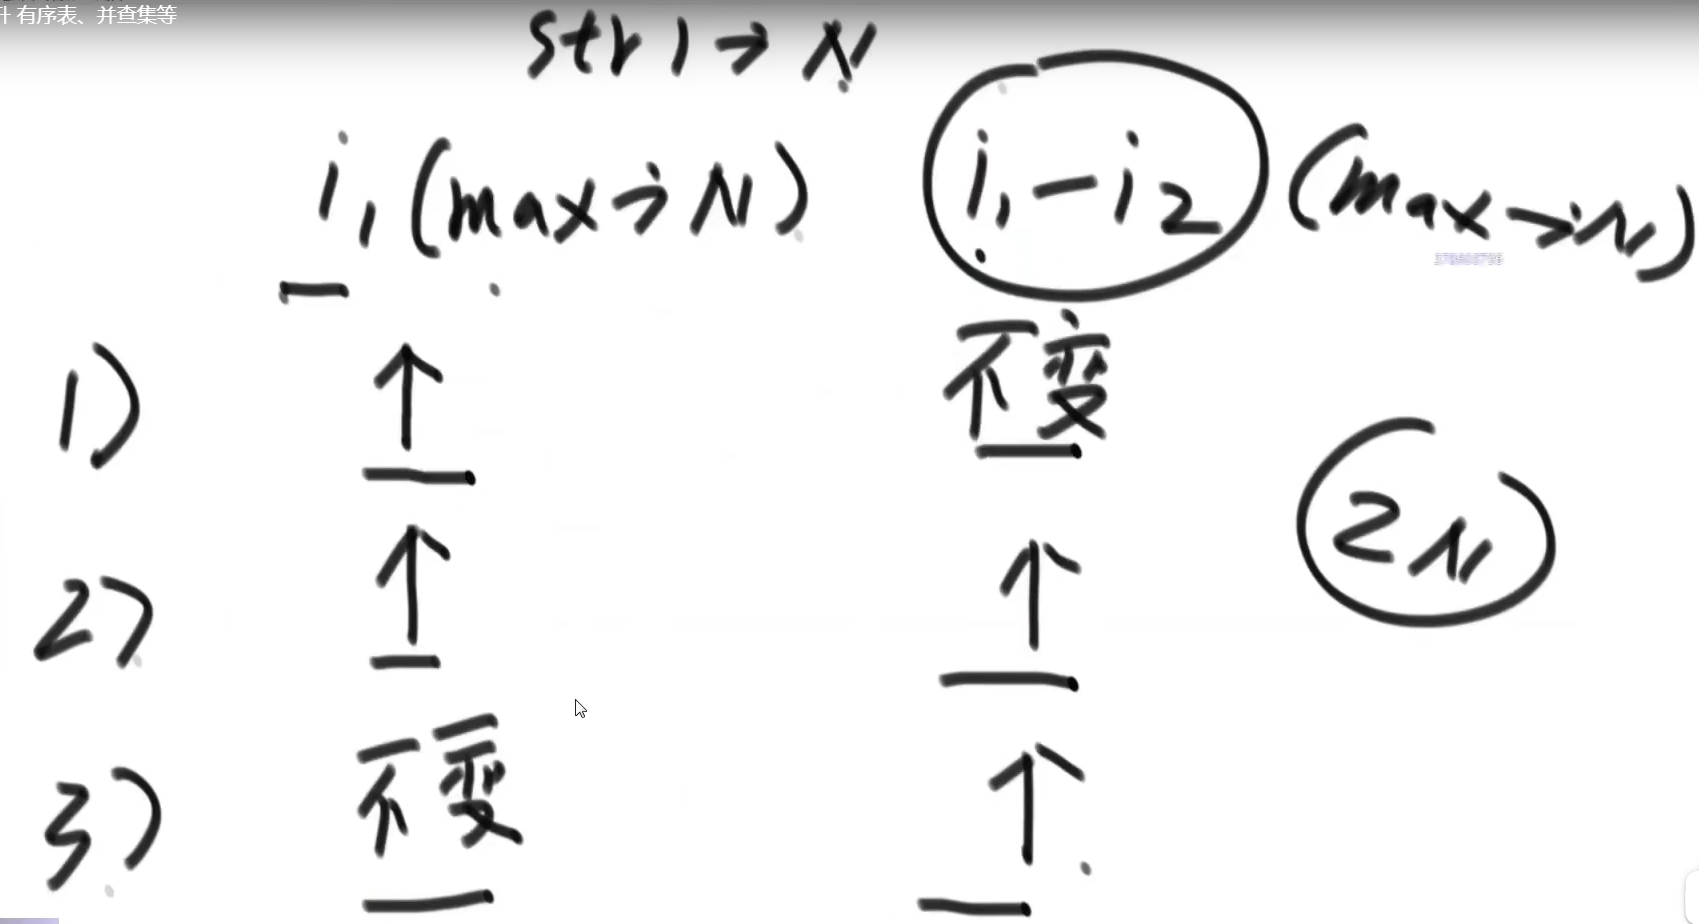 升 有序表、并查集等
str1→N
i₁(max→N) i₁-i₂ (max→N)
1) ↑ 不变
2N
2) ↑ ↑
3) 不变 ↑